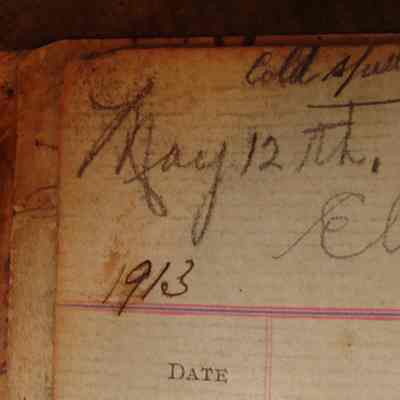 Cold
May 12th.
1913
DATE